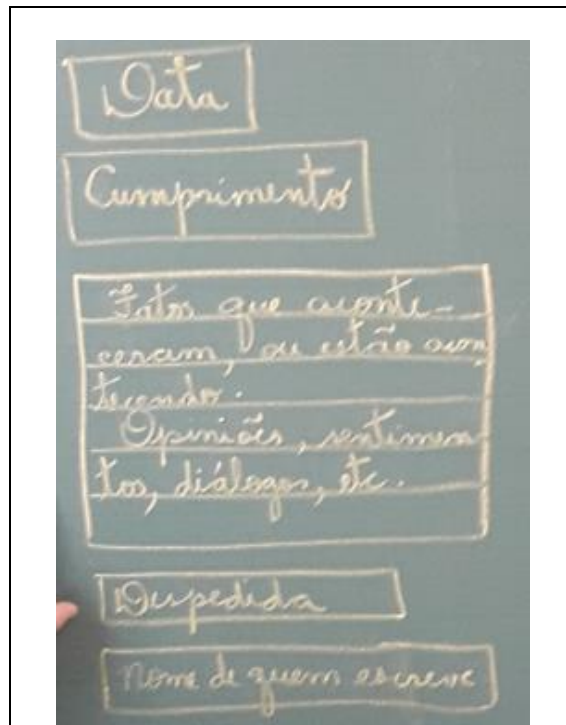 Data
Cumprimento
Fatos que aconte-
ceram, ou estão acon
tecendo.
Opiniões, sentimen
tos, diálogos, etc.
Despedida
Nome de quem escreve